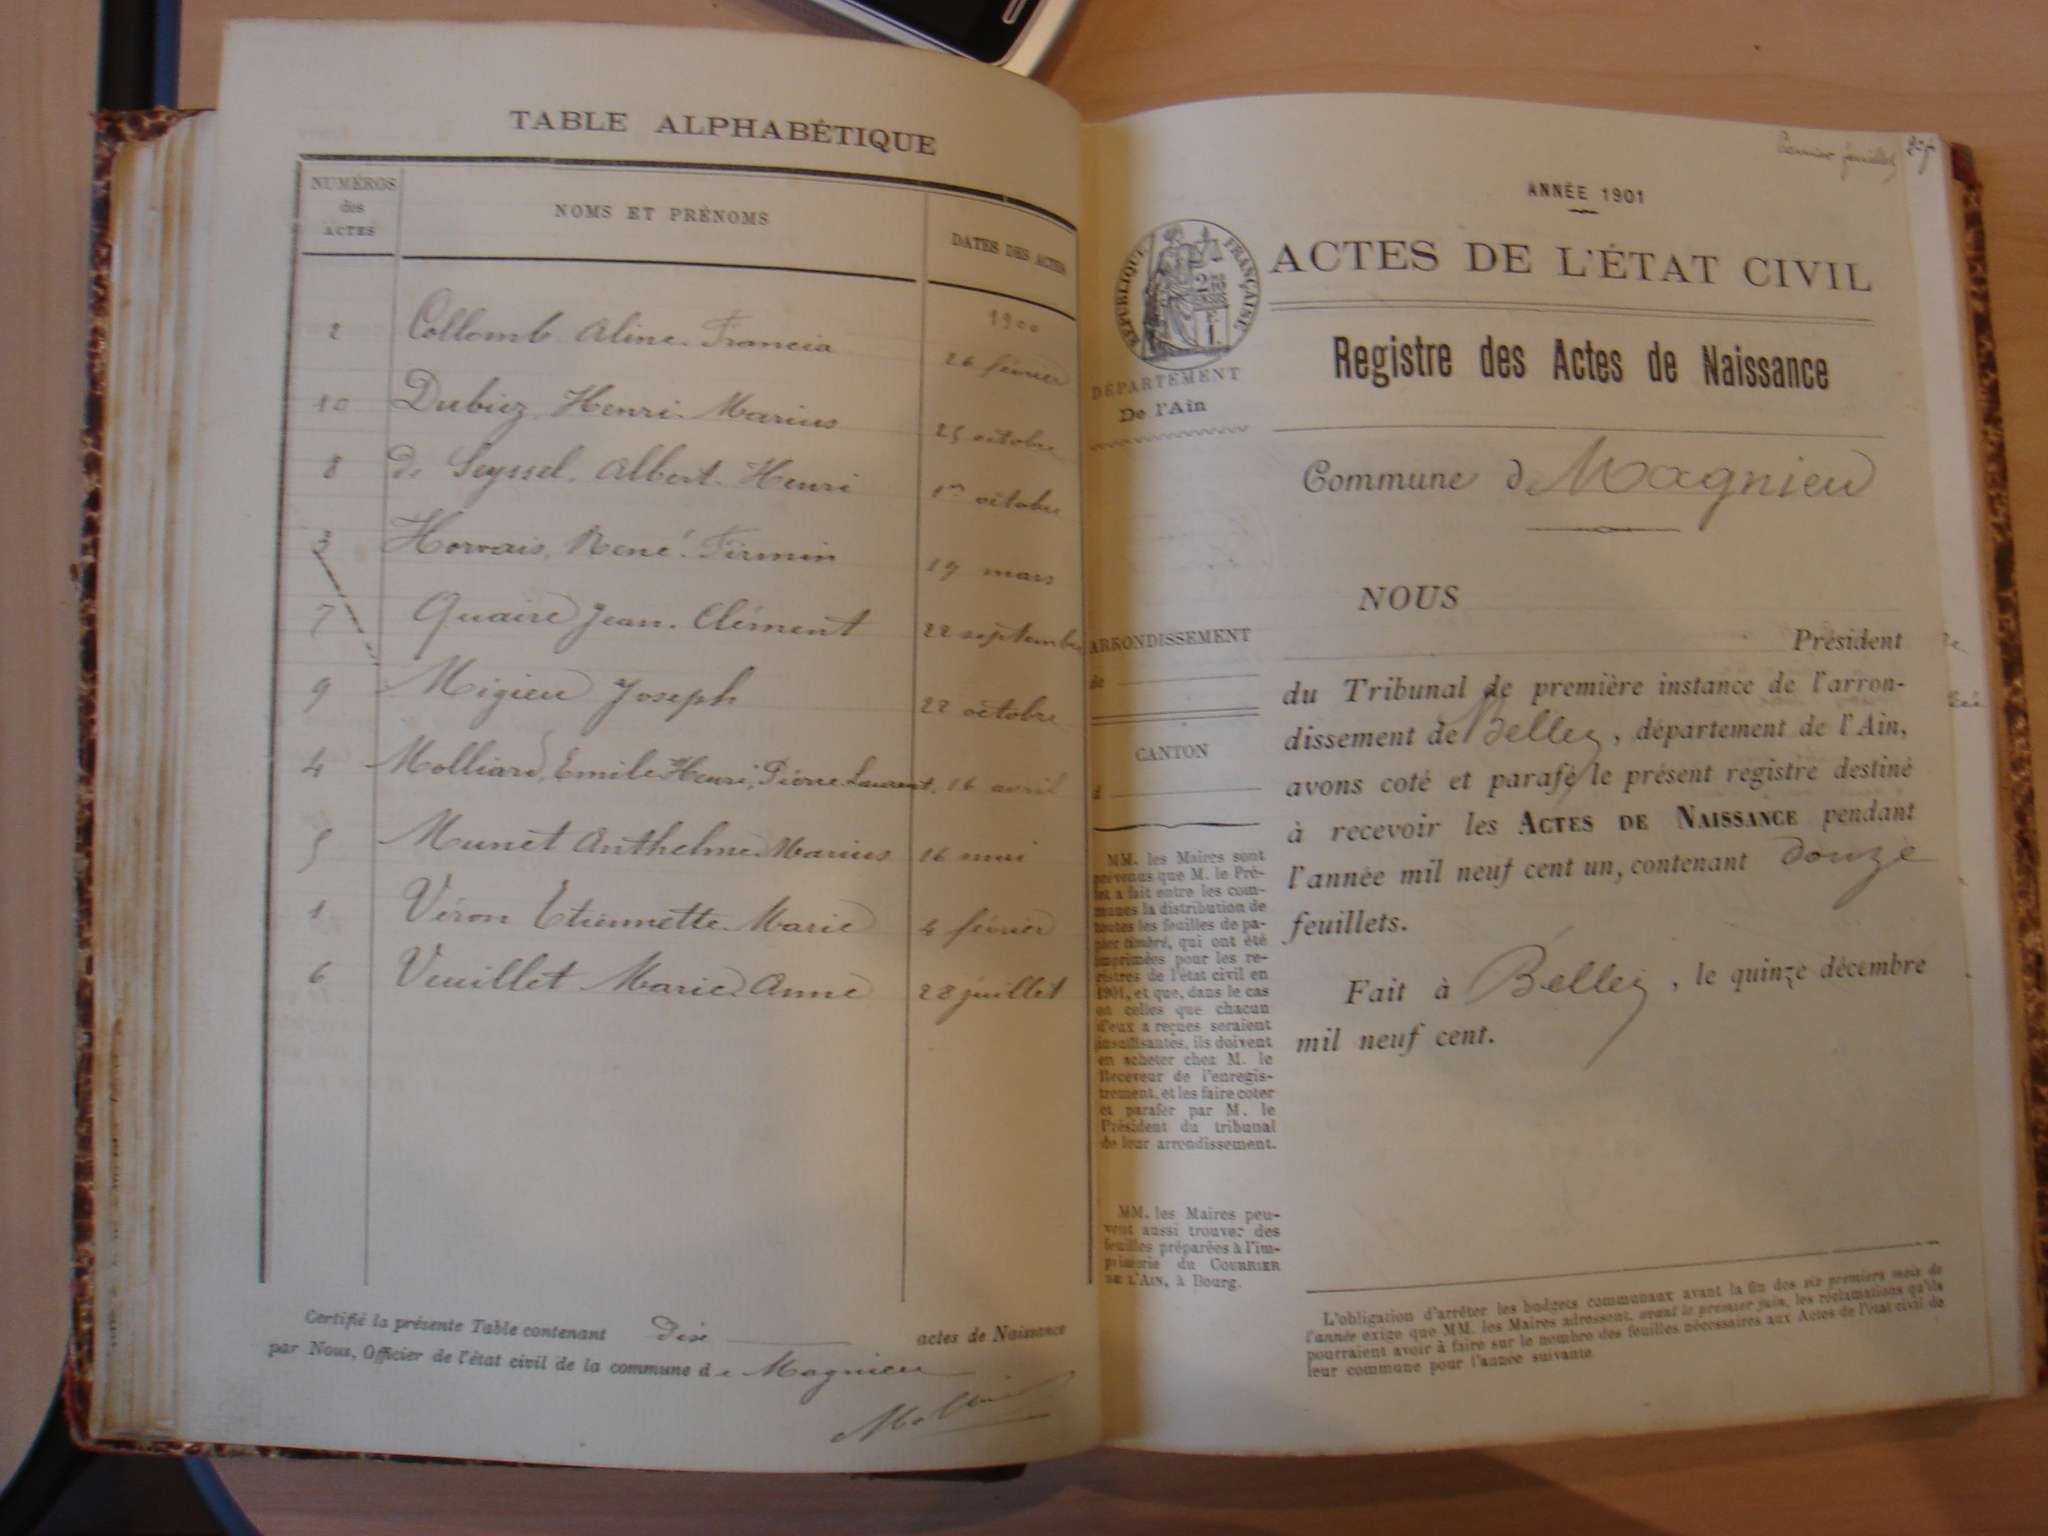 TABLE ALPHABÉTIQUE
NUMÉROS des ACTES
NOMS ET PRÉNOMS
DATES DES ACTES
1900
2 Collomb Aline. Francia 26 février
10 Dubiez, Henri. Marius 25 octobre
8 de Seyssel, Albert. Henri 1er octobre
3 Horvais, René. Firmin 19 mars
7 Quaire Jean. Clément 22 septembre
9 Migieu Joseph 22 octobre
4 Molliard, Emile Henri, Pierre Laurent, 16 avril
5 Munet Anthelme. Marius 16 mai
1 Véron Etiennette. Marie 4 février
6 Veuillet Marie. Anne 28 juillet
Certifié la présente Table contenant Dix actes de Naissance
par Nous, Officier de l'état civil de la commune de Magnieu
Premier feuillet
ANNÉE 1901
ACTES DE L'ÉTAT CIVIL
RÉPUBLIQUE FRANÇAISE
Registre des Actes de Naissance
DÉPARTEMENT
De l'Ain
Commune de Magnieu
NOUS
Président
du Tribunal de première instance de l'arron-
dissement de Belley, département de l'Ain,
avons coté et parafé le présent registre destiné
à recevoir les ACTES DE NAISSANCE pendant
l'année mil neuf cent un, contenant douze
feuillets.
Fait à Belley, le quinze décembre
mil neuf cent.
ARRONDISSEMENT
de
CANTON
d
MM. les Maires sont
prévenus que M. le Pré-
fet a fait entre les com-
munes la distribution de
toutes les feuilles de pa-
pier timbré, qui ont été
imprimées pour les re-
gistres de l'état civil en
1901, et que, dans le cas
où celles que chacun
d'eux a reçues seraient
insuffisantes, ils doivent
en acheter chez M. le
Receveur de l'enregis-
trement, et les faire coter
et parafer par M. le
Président du tribunal
de leur arrondissement.
MM. les Maires peu-
vent aussi trouver des
feuilles préparées à l'im-
primerie du COURRIER
DE L'AIN, à Bourg.
L'obligation d'arrêter les budgets communaux avant la fin des six premiers mois de
l'année exige que MM. les Maires adressent, avant le premier juin, les réclamations qu'ils
pourraient avoir à faire sur le nombre des feuilles nécessaires aux Actes de l'état civil de
leur commune pour l'année suivante.